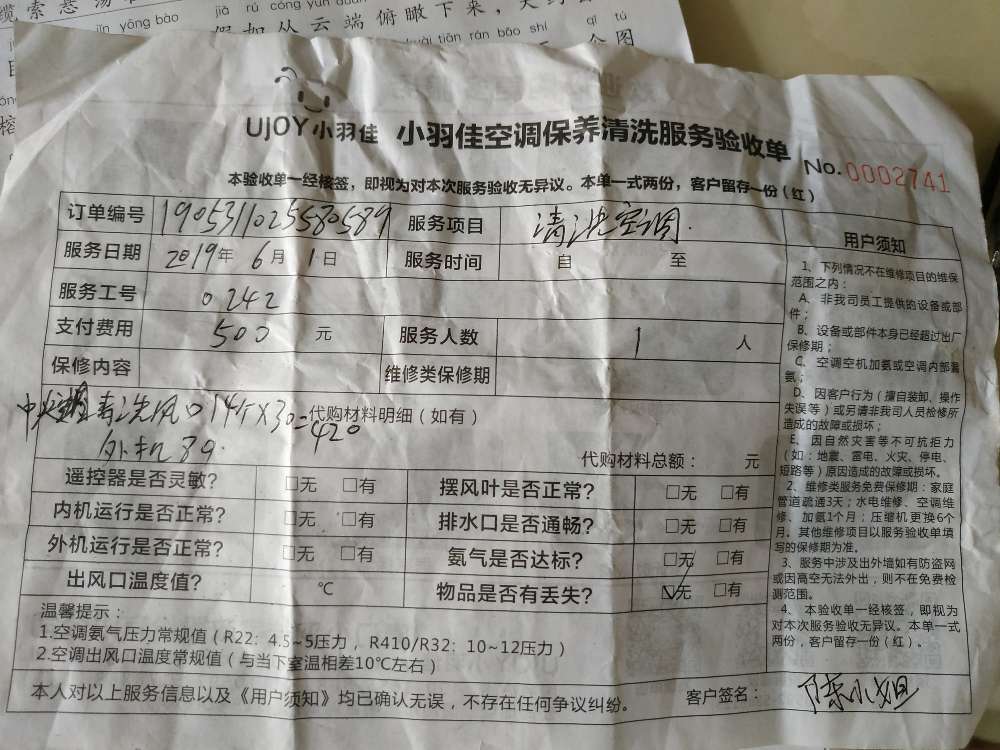 jīn yōng bào
UJOY小羽佳 小羽佳空调保养清洗服务验收单
No.0002741
本验收单一经核签，即视为对本次服务验收无异议。本单一式两份，客户留存一份（红）
订单编号 1905311025580589 服务项目 清洗空调.
服务日期 2019年 6月 1日 服务时间 自 至
服务工号 0242
支付费用 500 元 服务人数 1 人
保修内容 维修类保修期
中央空调清洗风口14个X30=420
代购材料明细（如有）
外机 89.
代购材料总额： 元
遥控器是否灵敏？ □无 □有 摆风叶是否正常？ □无 □有
内机运行是否正常？ □无 □有 排水口是否通畅？ □无 □有
外机运行是否正常？ □无 □有 氨气是否达标？ □无 □有
出风口温度值？ ℃ 物品是否有丢失？ ☑无 □有
温馨提示：
1.空调氨气压力常规值（R22：4.5~5压力，R410/R32：10~12压力）
2.空调出风口温度常规值（与当下室温相差10℃左右）
本人对以上服务信息以及《用户须知》均已确认无误，不存在任何争议纠纷。 客户签名： 陈小姐
用户须知
1、下列情况不在维修项目的维保
范围之内：
A、非我司员工提供的设备或部
件；
B、设备或部件本身已经超过出厂
保修期；
C、空调空机加氨或空调内部漏
氨；
D、因客户行为（擅自装卸、操作
失误等）或另请非我司人员检修所
造成的故障或损坏；
E、因自然灾害等不可抗拒力
（如：地震、雷电、火灾、停电、
短路等）原因造成的故障或损坏。
2、维修类服务免费保修期：家庭
管道疏通3天；水电维修、空调维
修、加氨1个月；压缩机更换6个
月。其他维修项目以服务验收单填
写的保修期为准。
3、服务中涉及出外墙如有防盗网
或因高空无法外出，则不在免费检
测范围。
4、本验收单一经核签，即视为
对本次服务验收无异议。本单一式
两份，客户留存一份（红）。